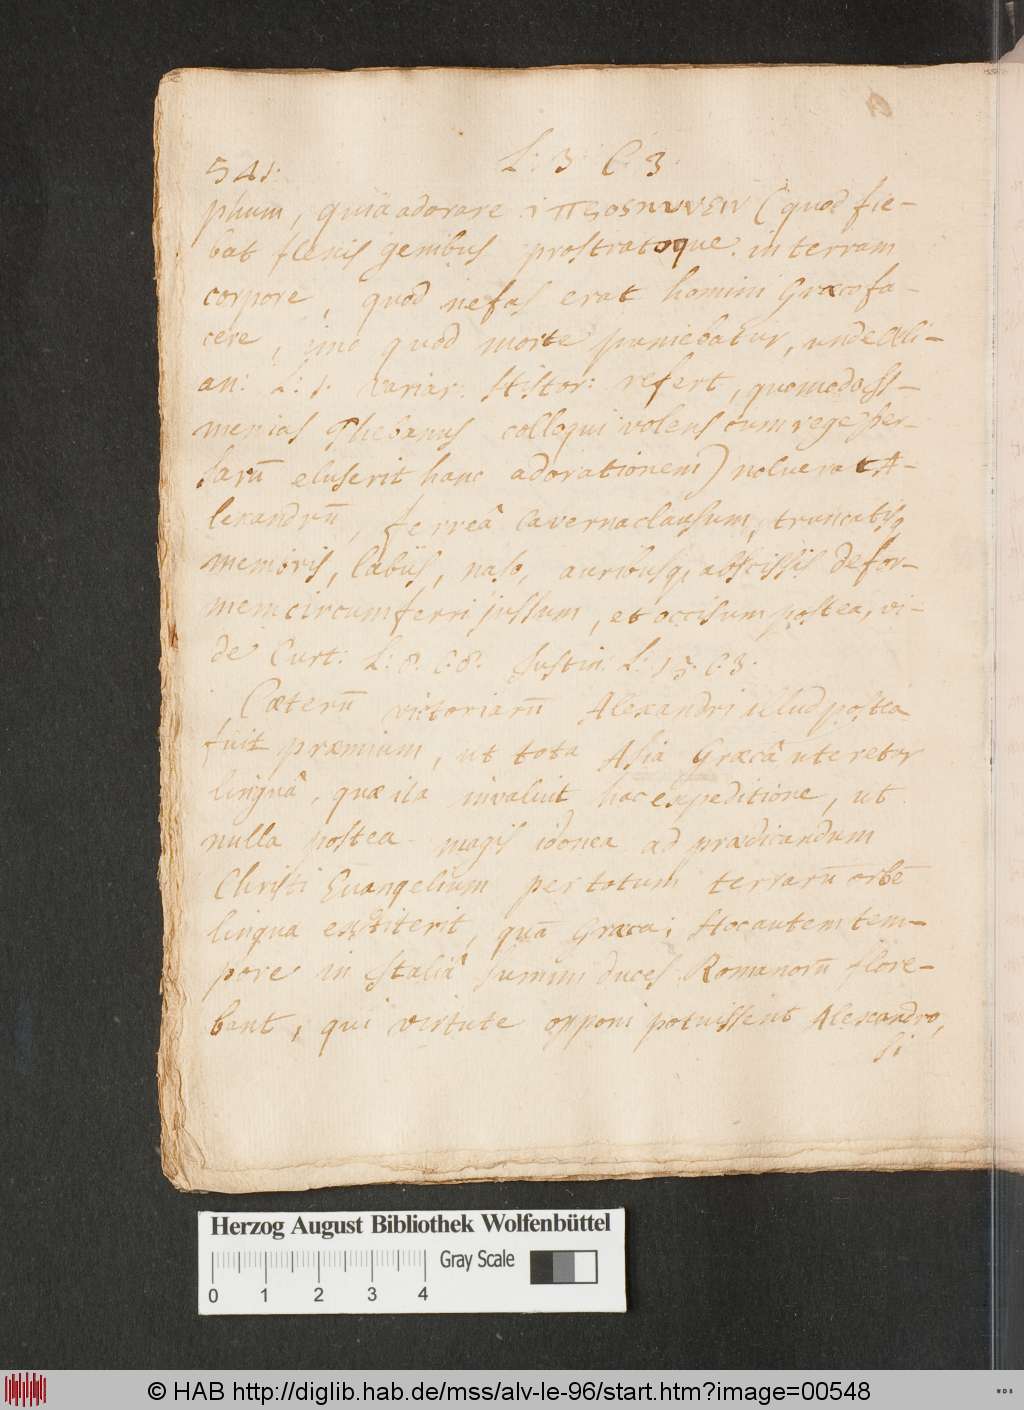 541.
L: 3. C: 3.
phum, quia adorare i προσκυνεῖν (quod fie-
bat flexis genibus prostratoque in terram
corpore, quod nefas erat homini Græco fa-
cere, imo quod morte puniebatur, unde Æli-
an: L: 1. Variar: Histor: refert, quomodo Is-
menias Thebanus colloqui volens cum rege Per-
sarū eluserit hanc adorationem) noluerat A-
lexandrū, ferreâ caverna clausum, truncatisq
membris, labiis, naso, auribusq, abscissis defor-
mem circumferri jussum, et occisum postea, vi-
de Curt: L: 8. C. 8. Justin: L: 15. C. 3.
Cæterū victoriarū Alexandri illud postea
fuit præmium, ut tota Asia Græcâ uteretur
linguâ, quæ ita invaluit hac expeditione, ut
nulla postea magis idonea ad prædicandum
Christi Evangelium per totum terrarū orbē
lingua exstiterit, quā Græca; Hoc autem tem-
pore in Italiâ summi duces Romanorū flore-
bant, qui virtute opponi potuissent Alexandro,
si
Herzog August Bibliothek Wolfenbüttel
Gray Scale
0 1 2 3 4
© HAB http://diglib.hab.de/mss/alv-le-96/start.htm?image=00548